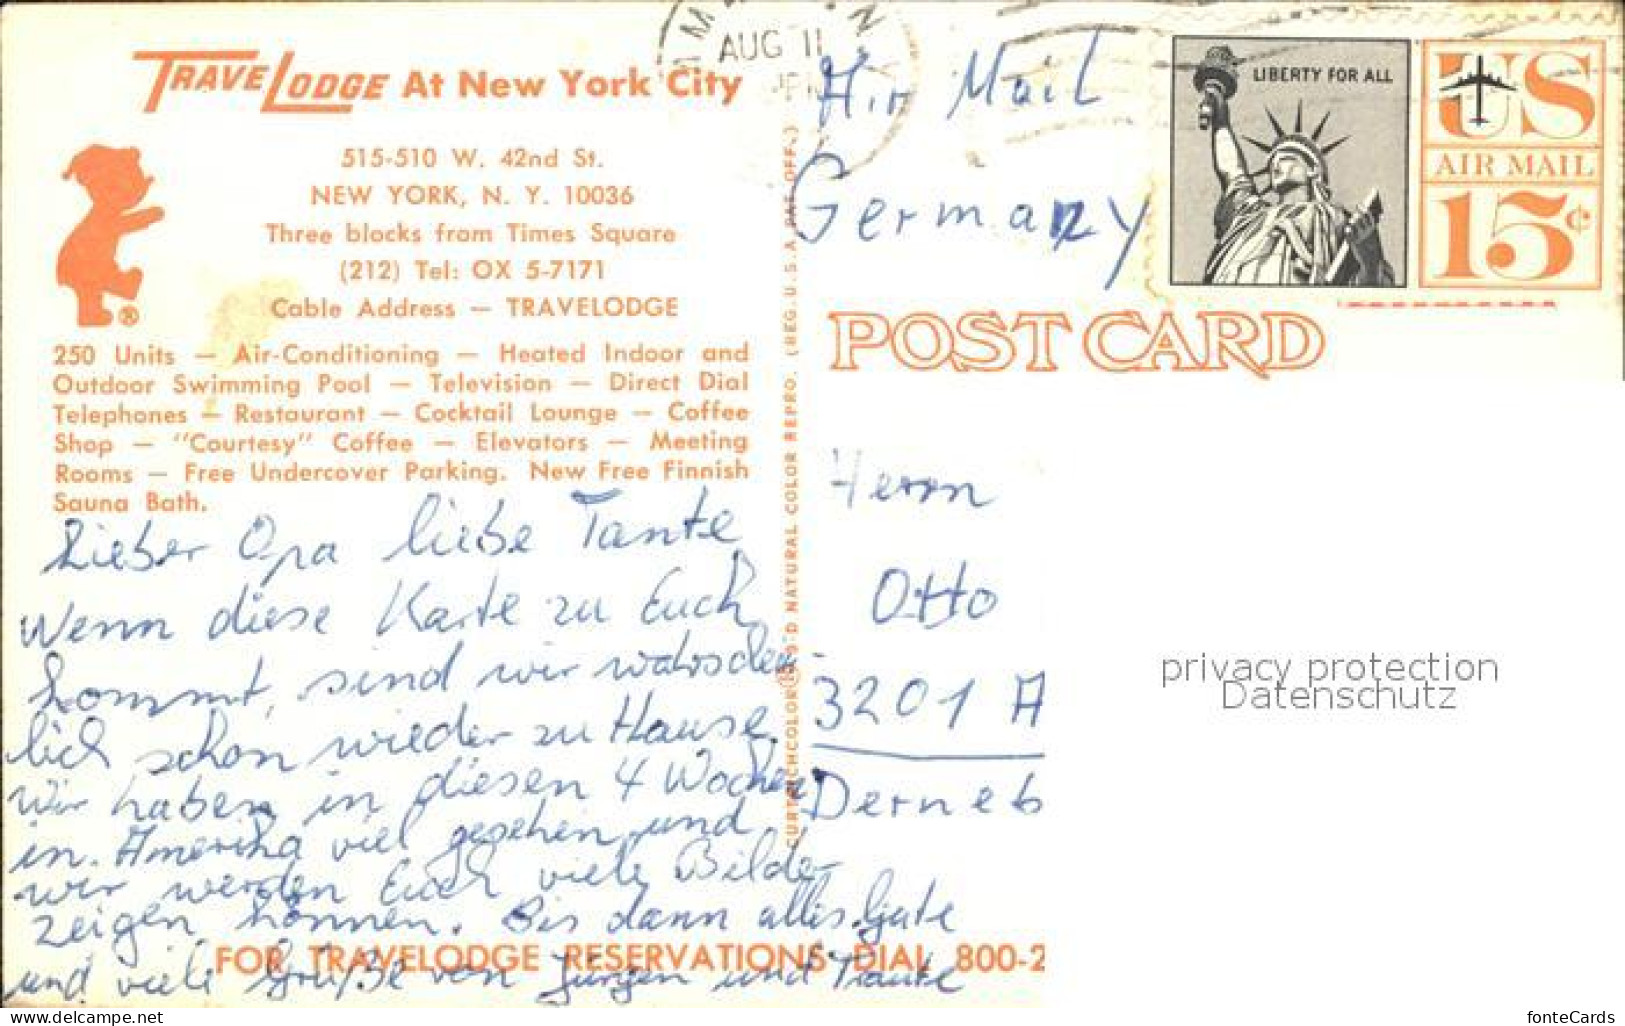 TRAVELODGE At New York City
515-510 W. 42nd St.
NEW YORK, N. Y. 10036
Three blocks from Times Square
(212) Tel: OX 5-7171
Cable Address — TRAVELODGE
250 Units — Air-Conditioning — Heated Indoor and
Outdoor Swimming Pool — Television — Direct Dial
Telephones — Restaurant — Cocktail Lounge — Coffee
Shop — "Courtesy" Coffee — Elevators — Meeting
Rooms — Free Undercover Parking. New Free Finnish
Sauna Bath.
Lieber Opa liebe Tante
Wenn diese Karte zu Euch
kommt, sind wir wahrschein-
lich schon wieder zu Hause.
Wir haben in diesen 4 Wochen
in Amerika viel gesehen und
wir werden Euch viele Bilder
zeigen können. Bis dann alles Gute
und viele Grüße von Jürgen und Traute
FOR TRAVELODGE RESERVATIONS DIAL 800-2
NATURAL COLOR REPRO. (REG. U.S.A. PAT. OFF.)
AUG 11
Air Mail
Germany
LIBERTY FOR ALL
US
AIR MAIL
15¢
POST CARD
Herrn
Otto
3201 A
Derneb
privacy protection
Datenschutz
www.delcampe.net
fonteCards